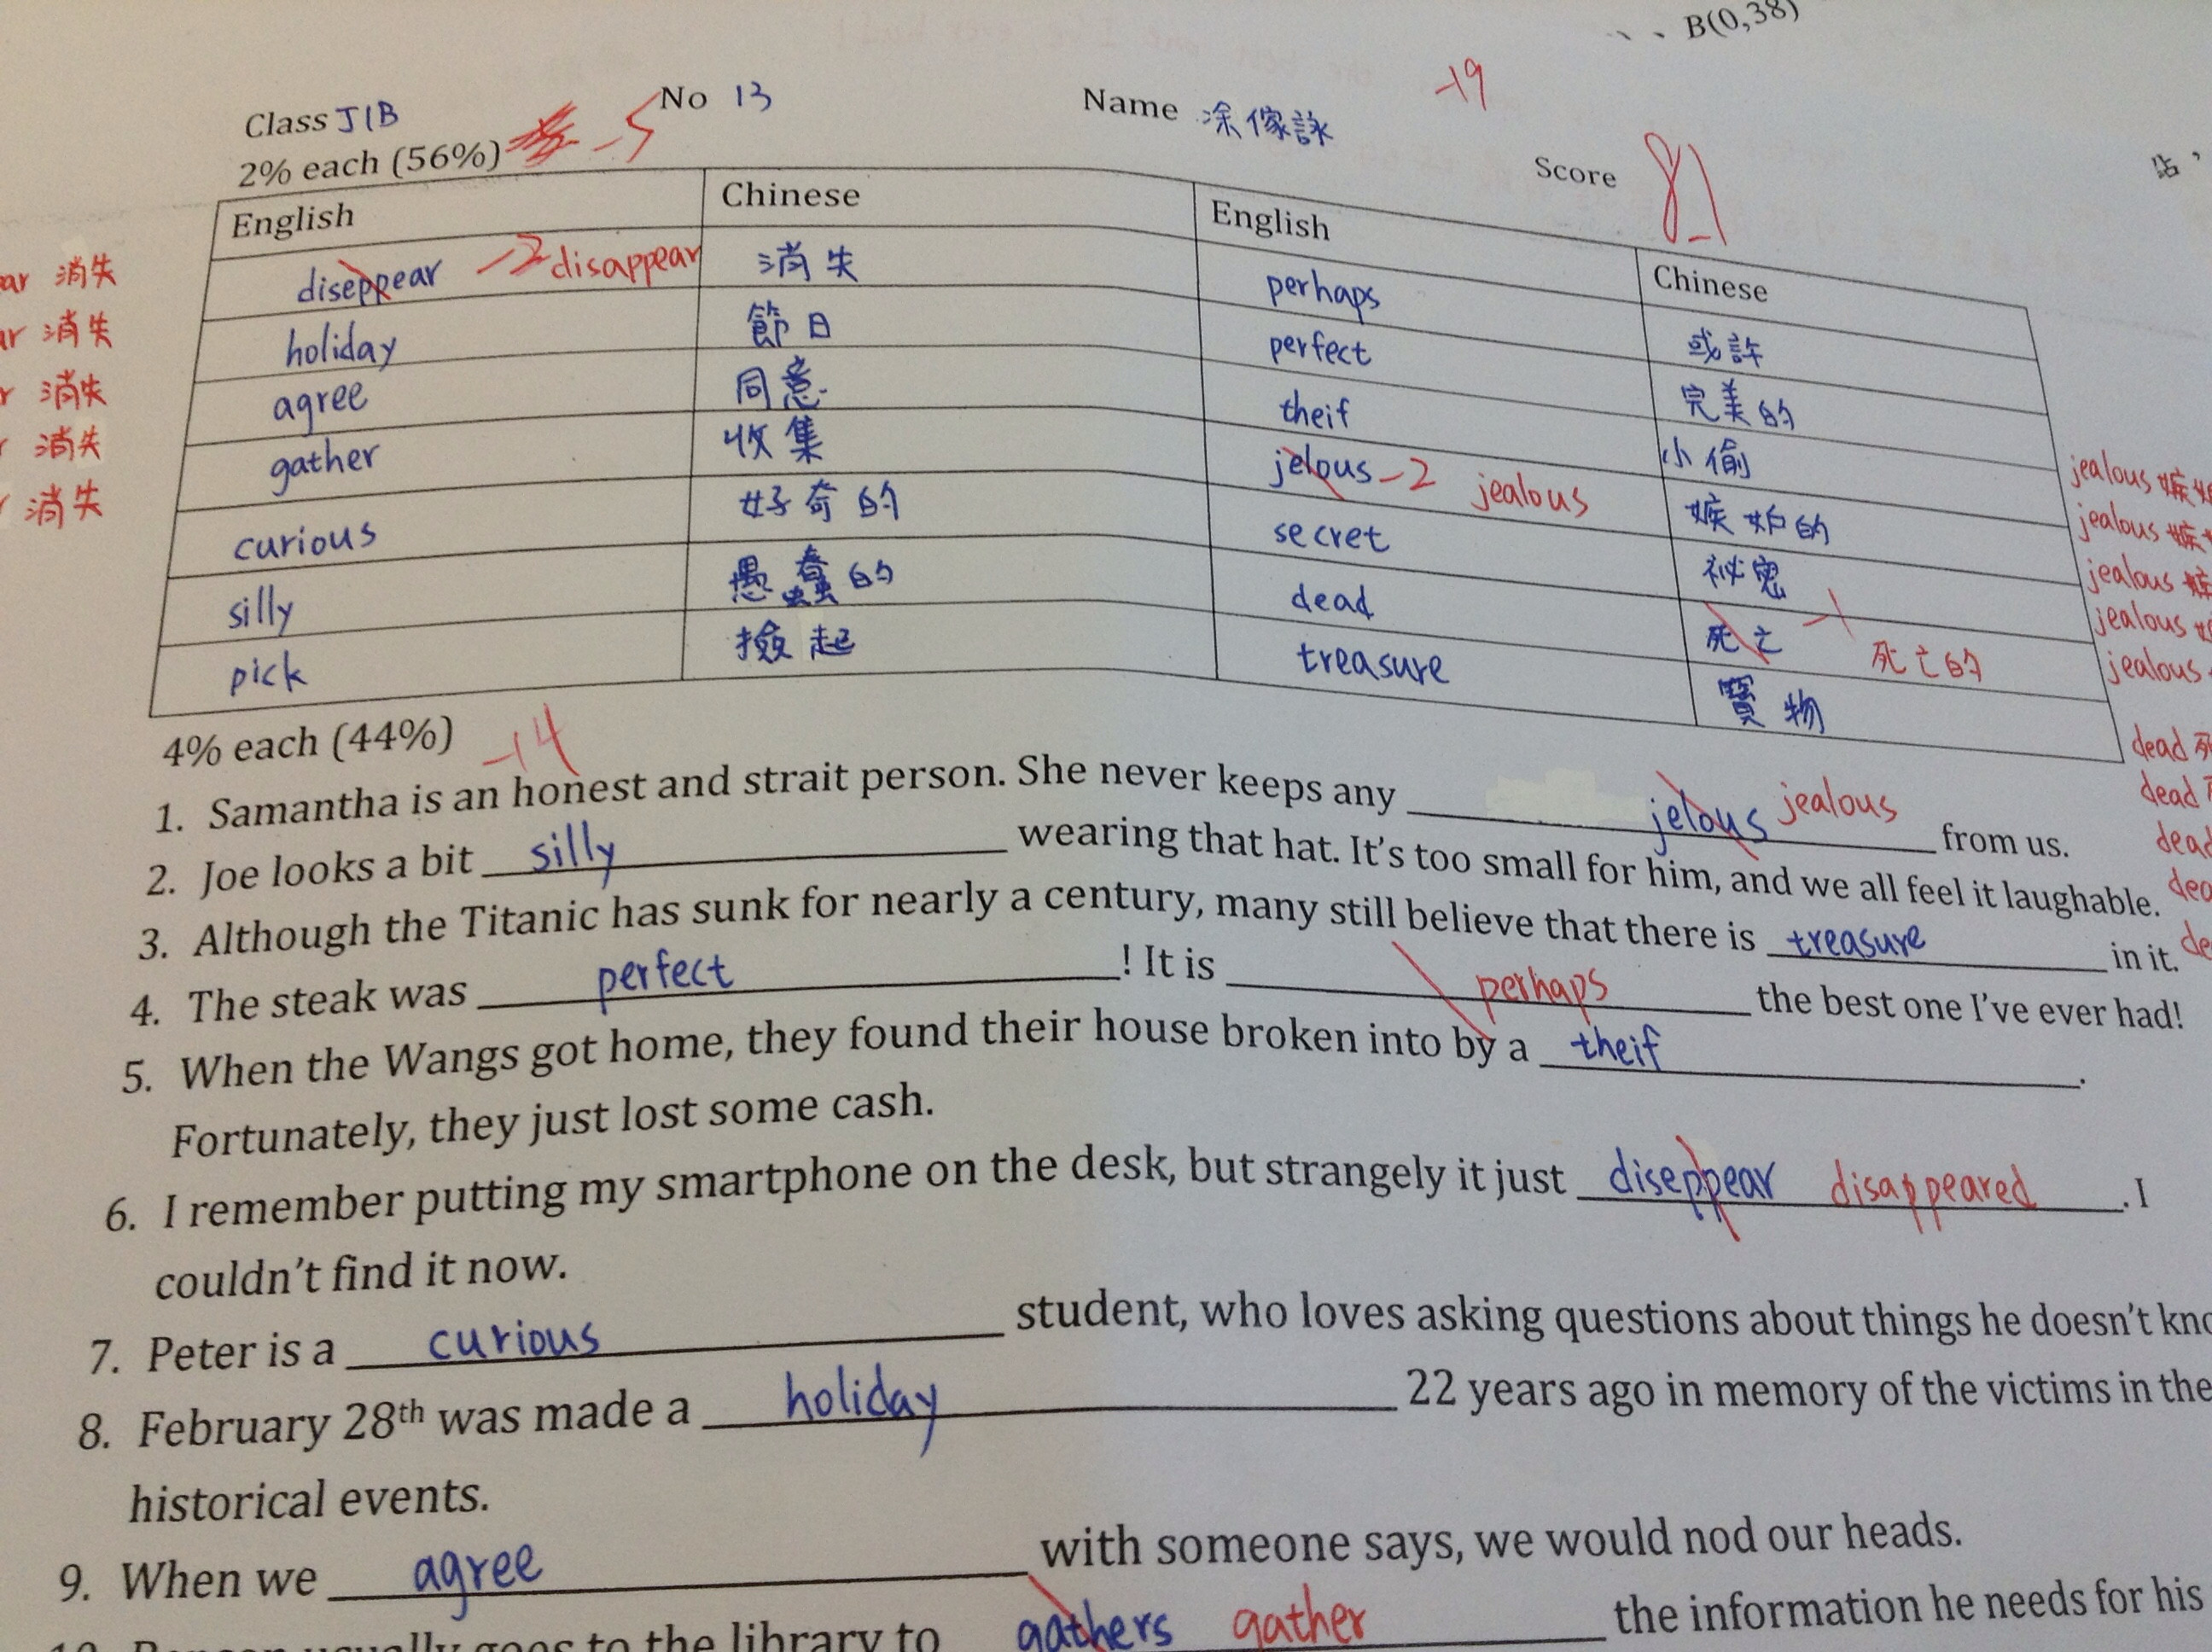 B(0,38)
Class J1B No 13 Name 涂傢詠 -19
2% each (56%) -5 Score 81
English Chinese English Chinese
diseppear -2 disappear 消失 perhaps 或許
holiday 節日 perfect 完美的
agree 同意 theif 小偷
gather 收集 jelous -2 jealous 嫉妒的
curious 好奇的 secret 祕密
silly 愚蠢的 dead 死亡 -1 死亡的
pick 撿起 treasure 寶物
ar 消失
ar 消失
r 消失
r 消失
r 消失
jealous 嫉
jealous 嫉
jealous
jealous
jealous
dead 死
dead
dead
4% each (44%) -14
1. Samantha is an honest and strait person. She never keeps any jelous jealous from us.
2. Joe looks a bit silly wearing that hat. It's too small for him, and we all feel it laughable.
3. Although the Titanic has sunk for nearly a century, many still believe that there is treasure in it.
4. The steak was perfect ! It is perhaps the best one I've ever had!
5. When the Wangs got home, they found their house broken into by a theif .
Fortunately, they just lost some cash.
6. I remember putting my smartphone on the desk, but strangely it just diseppear disappeared . I
couldn't find it now.
7. Peter is a curious student, who loves asking questions about things he doesn't kno
8. February 28th was made a holiday 22 years ago in memory of the victims in the
historical events.
9. When we agree with someone says, we would nod our heads.
usually goes to the library to gathers gather the information he needs for his